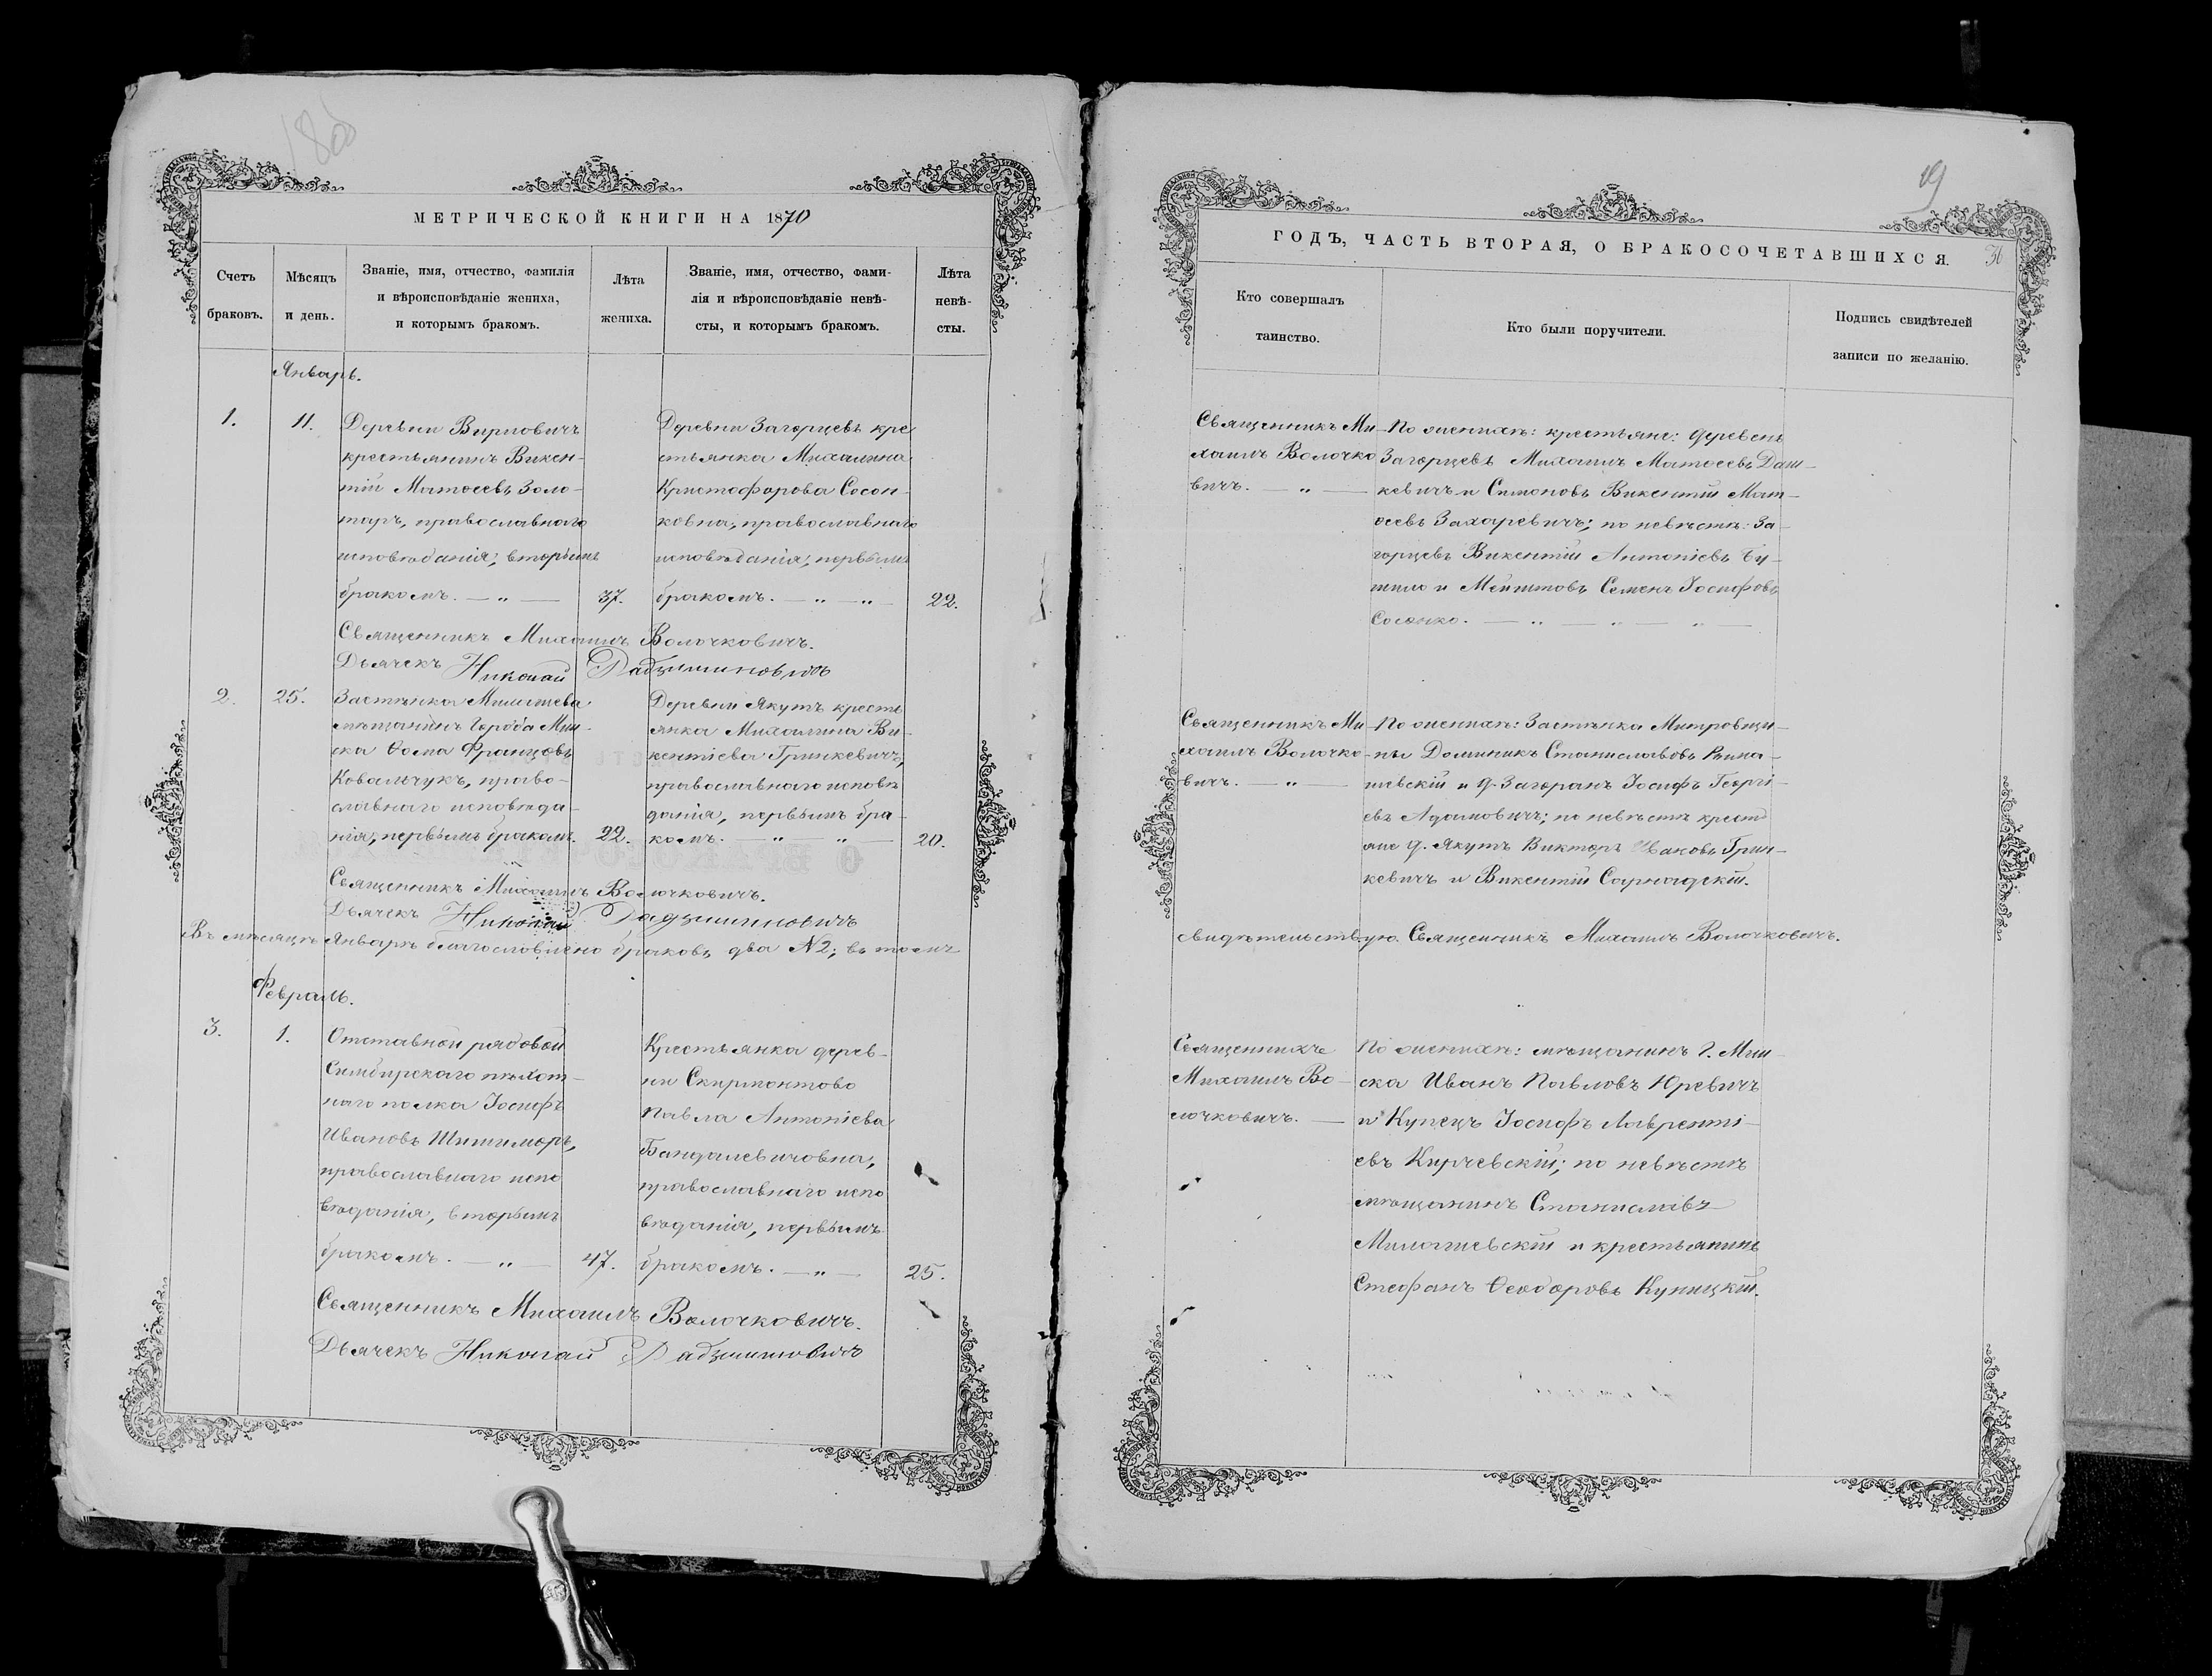 МЕТРИЧЕСКОЙ КНИГИ НА 1870
Счетъ браковъ.
Мѣсяцъ и день.
Званіе, имя, отчество, фамилія
и вѣроисповѣданіе жениха,
и которымъ бракомъ.
Лѣта жениха.
Званіе, имя, отчество, фами-
лія и вѣроисповѣданіе невѣ-
сты, и которымъ бракомъ.
Лѣта невѣ-
сты.
Январь.
1.
11.
Деревни
крестьянинъ Викен-
тій Матѳеевъ Золо-
таръ, православнаго
исповѣданія; вторымъ
бракомъ. — „ —
37.
Деревни Загорцевъ кре
стьянка Михалина
Кристофорова Сосон-
ковна, православнаго
исповѣданія, первымъ
бракомъ. — „ — „ —
22.
Священникъ Михаилъ Волочковичъ.
Дьячекъ Николай
2.
25.
Застѣнка
мѣщанинъ города Мин-
ска Ѳома Францовъ
Ковальчукъ, право-
славнаго исповѣда-
нія, первымъ бракомъ.
22.
Деревни Якутъ кресть
янка Михалина Ви-
кентіева Гринкевичъ,
православнаго исповѣ
данія, первымъ бра-
комъ. — „ — „ —
20.
Священникъ Михаилъ Волочковичъ.
Дьячекъ Николай
Въ мѣсяцѣ Январѣ благословлено браковъ два N 2; въ томъ
Февраль.
3.
1.
Отставной рядовой
Симбирскаго пѣхот-
наго полка Іосифъ
Ивановъ Шишиморъ,
православнаго испо
вѣданія, вторымъ
бракомъ. — „ —
47.
Крестьянка дерев-
ни Скирмонтово
Павла Антоніева
Бандалевичовна,
православнаго испо
вѣданія, первымъ
бракомъ. — „ —
25.
Священникъ Михаилъ Волочковичъ.
Дьячекъ Николай
19
ГОДЪ, ЧАСТЬ ВТОРАЯ, О БРАКОСОЧЕТАВШИХСЯ.
Кто совершалъ
таинство.
Кто были поручители.
Подпись свидѣтелей
записи по желанію.
Священникъ Ми-
хаилъ Волочко
вичъ. — „ —
По женихѣ: крестьяне: деревень
Загорцевъ Михаилъ Матѳеевъ Даш-
кевичъ и Симоновъ Викентій Мат-
ѳеевъ Захаревичъ; по невѣстѣ: За-
горцевъ Викентій Антоніевъ Бу-
тило и Мейштовъ Семенъ Іосифовъ
Сосонко. — „ — „ — „ —
Священникъ Ми-
хаилъ Волочко-
вичъ. — „ —
По женихѣ: Застѣнка Митровщи-
ны Доминикъ Станиславовъ
и д. Загоранъ Іосифъ Георгі-
евъ Адамовичъ; по невѣстѣ крестъ
яне д. Якутъ Викторъ Ивановъ Грин-
кевичъ и Викентій
свидѣтельствую Священникъ Михаилъ Волочковичъ.
Священникъ
Михаилъ Во-
лочковичъ. —
По женихѣ: мѣщанинъ г. Мин-
ска Иванъ Павловъ Юревичъ
и Купецъ Іосифъ Лавренті-
евъ Кирчевскій; по невѣстѣ
мѣщанинъ Станиславъ
и крестьянинъ
Стефанъ Ѳеодоровъ Куницкій.